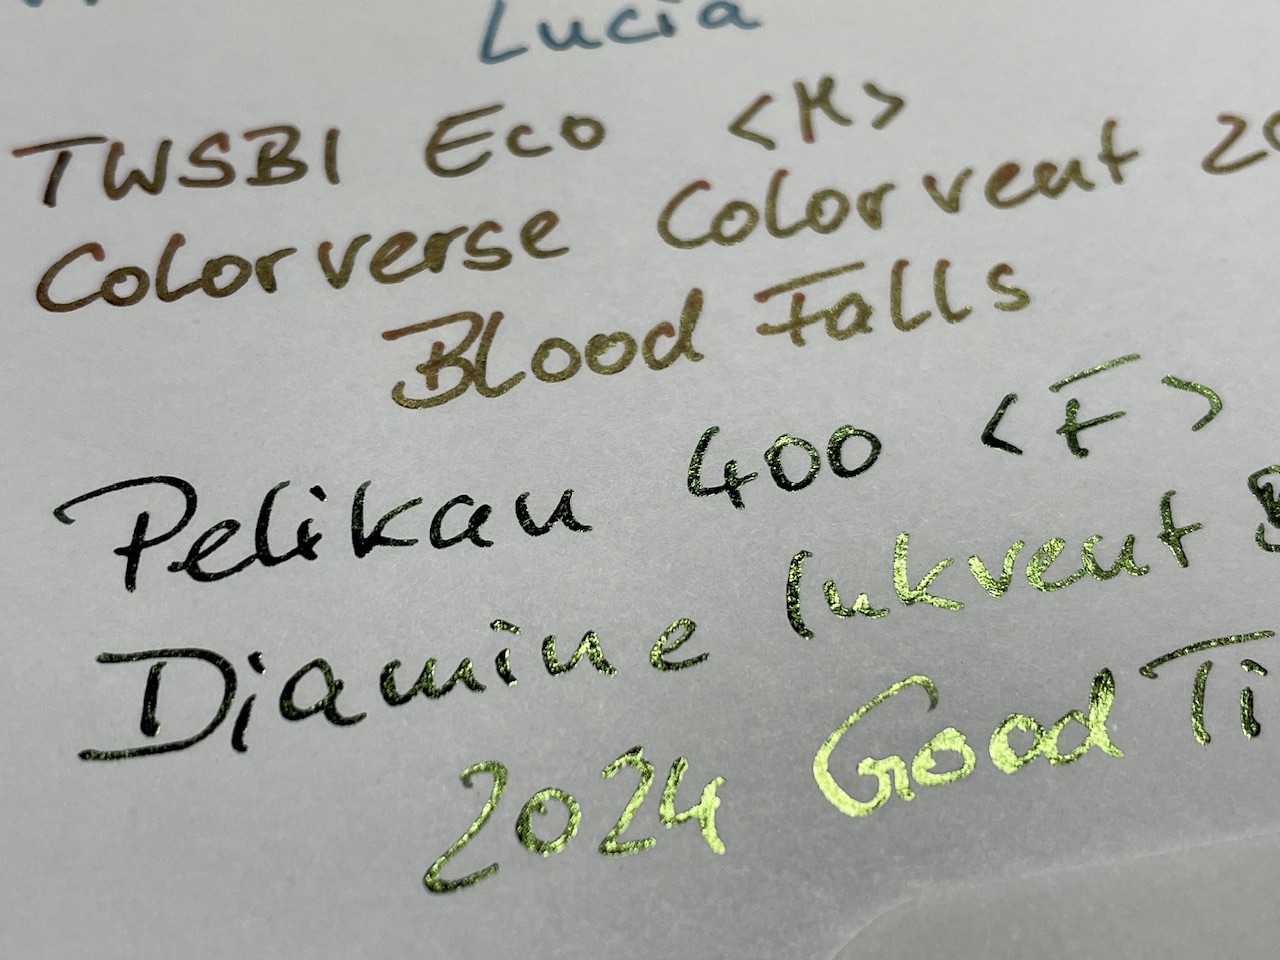 Lucia
TWSBI Eco <M>
Colorverse Colorvent 20
Blood Falls
Pelikan 400 <F>
Diamine Inkvent B
2024 Good Ti